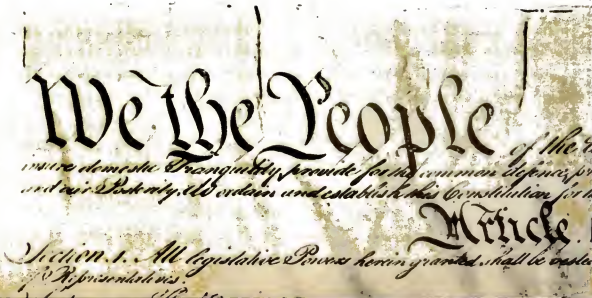 We the People of the
insure domestic Tranquility, provide for the common defence,
and our Posterity, do ordain and establish this Constitution for
Article.
Section. 1. All legislative Powers herein granted shall be vested
of Representatives.